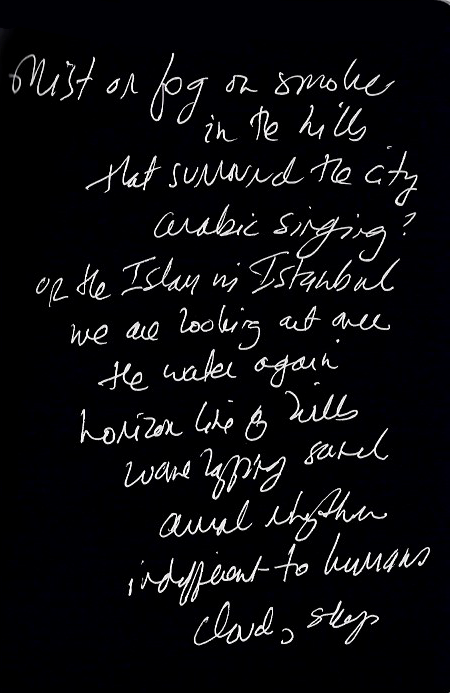 Mist or fog or smoke
in the hills
that surround the city
arabic singing?
or the Islam in Istanbul
we are looking out over
the water again
horizon line of hills
wave lapping sand
aural rhythm
indifferent to humans
cloud, sky